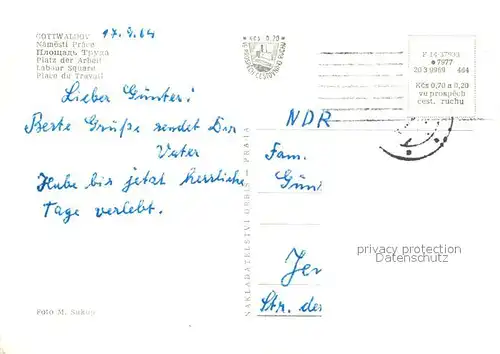 GOTTWALDOV
Náměstí Práce
Площадь Труда
Platz der Arbeit
Labour Square
Place du Travail
17.9.64
Lieber Günter!
Beste Grüße sendet Dir
Vater
Habe bis jetzt herrliche
Tage verlebt.
Foto M. Sukup
NAKLADATELSTVÍ ORBIS — PRAHA
Kčs 0,20
VE PROSPĚCH CESTOVNÍHO RUCHU
7977
464
Kčs 0,70 a 0,20
ve prospěch
cest. ruchu
NDR
Fam.
Günt
Jen
Str. des
privacy protection
Datenschutz